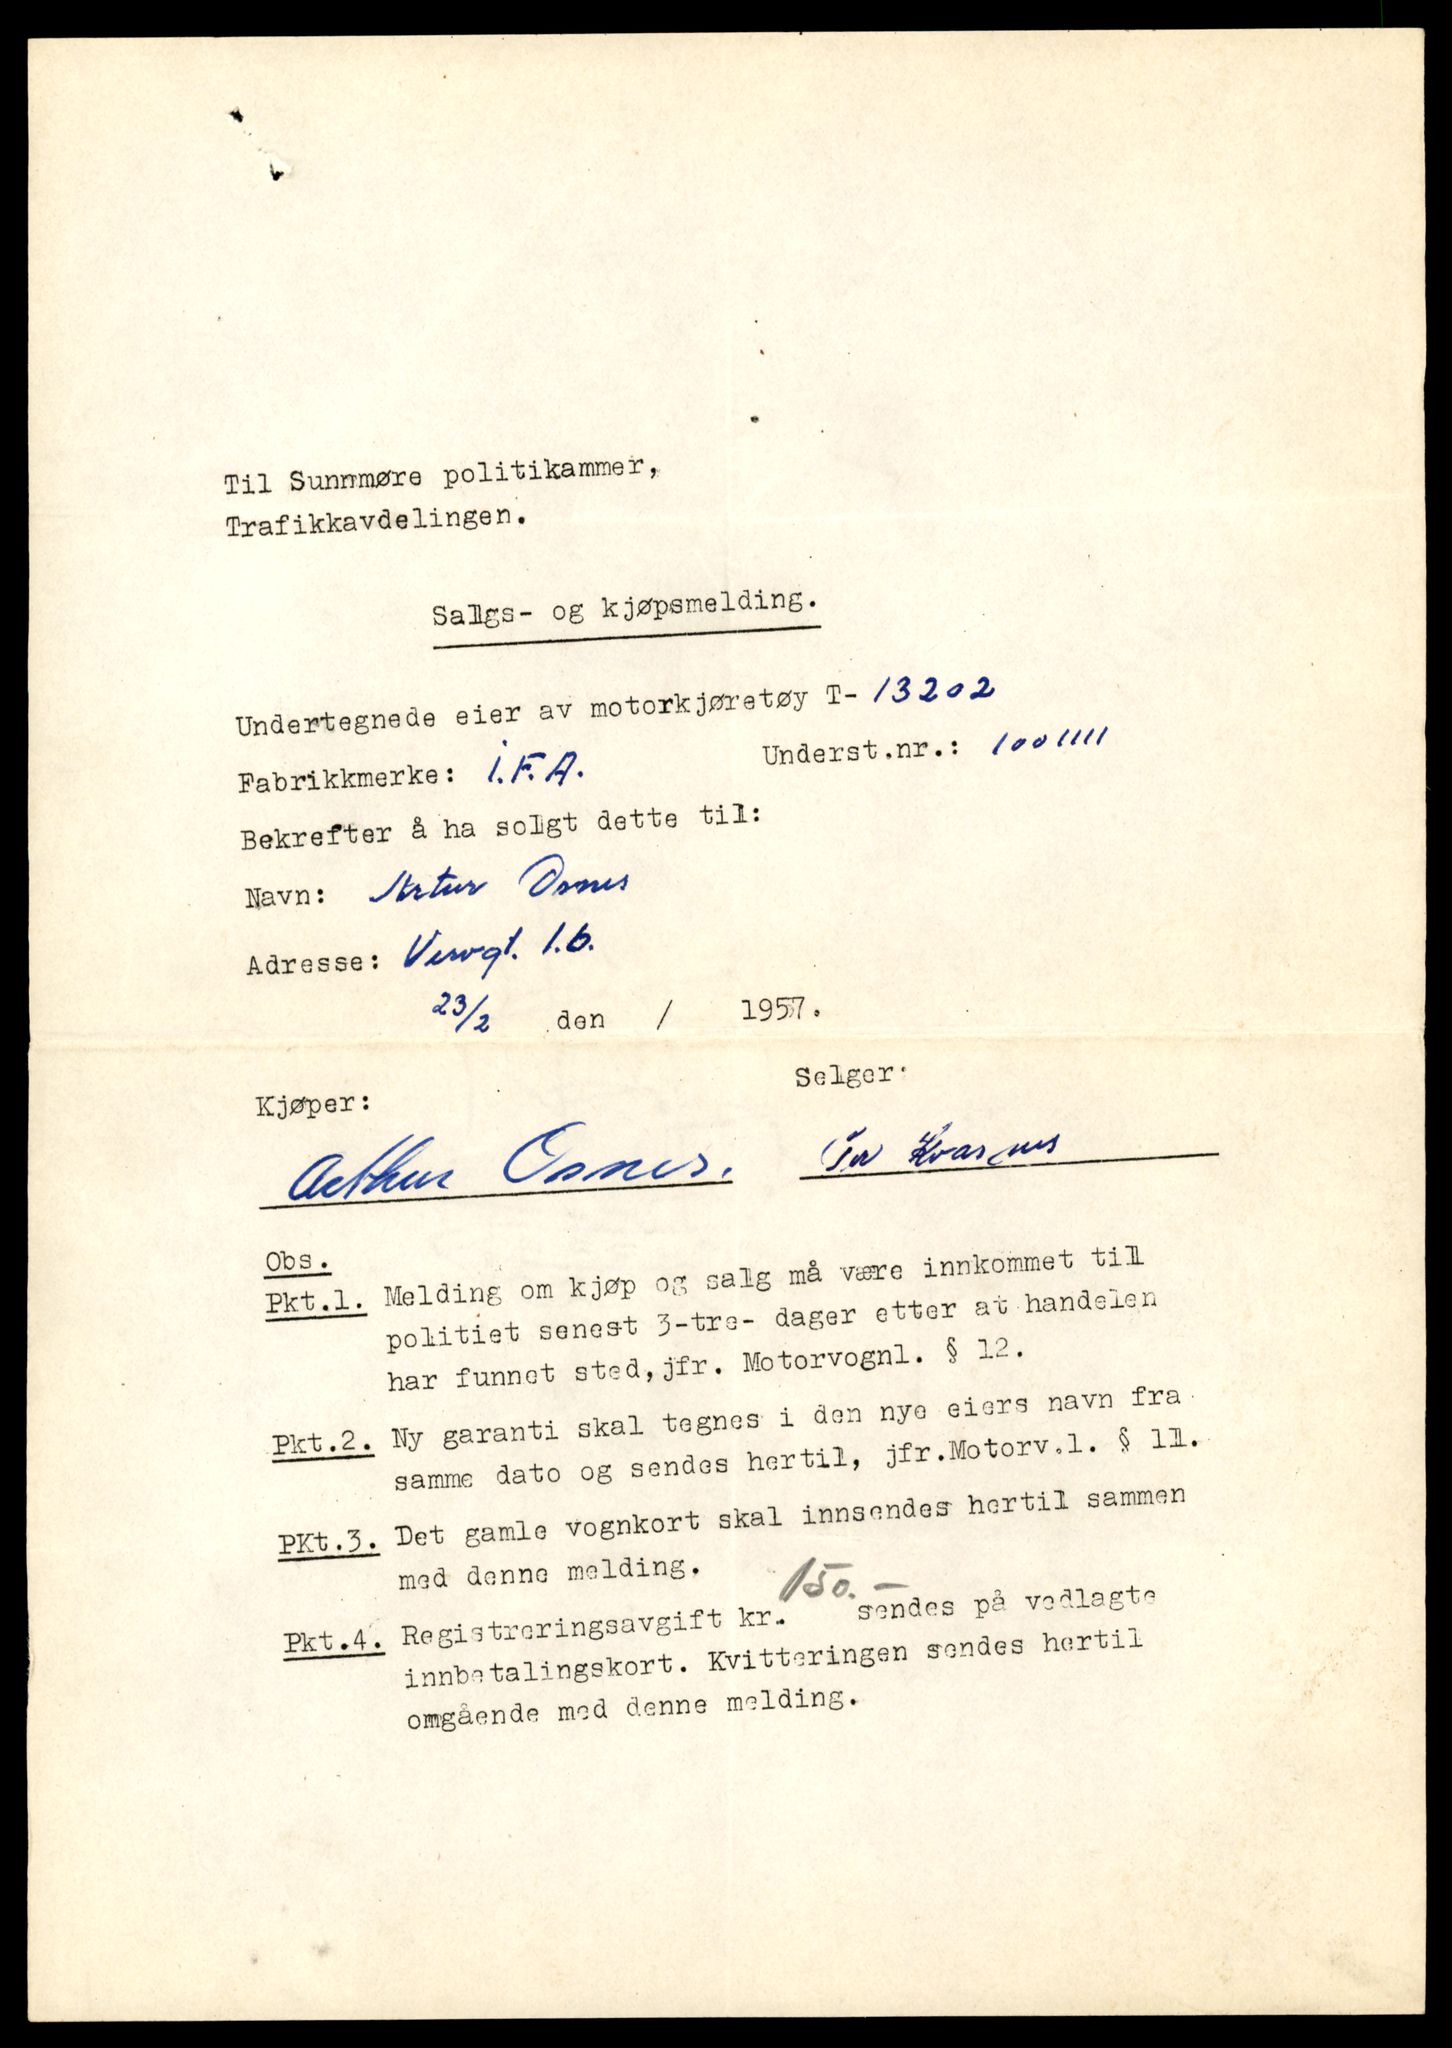 Til Sunnmøre politikammer,
Trafikkavdelingen.
Salgs- og kjøpsmelding.
Undertegnede eier av motorkjøretøy T- 13202
Fabrikkmerke: i.F.A. Underst.nr.: 1001111
Bekrefter å ha solgt dette til:
Navn: Artur Osnes
Adresse: 1.b.
23/2 den / 1957.
Kjøper: Selger:
Arthur Osnes. Kvasnes
Obs.
Pkt.1. Melding om kjøp og salg må være innkommet till
politiet senest 3-tre- dager etter at handelen
har funnet sted, jfr. Motorvognl. § 12.
Pkt.2. Ny garanti skal tegnes i den nye eiers navn fra
samme dato og sendes hertil, jfr.Motorv.l. § 11.
PKt.3. Det gamle vognkort skal innsendes hertil sammen
med denne melding.
Pkt.4. Registreringsavgift kr. 150.- sendes på vedlagte
innbetalingskort. Kvitteringen sendes hertil
omgående med denne melding.